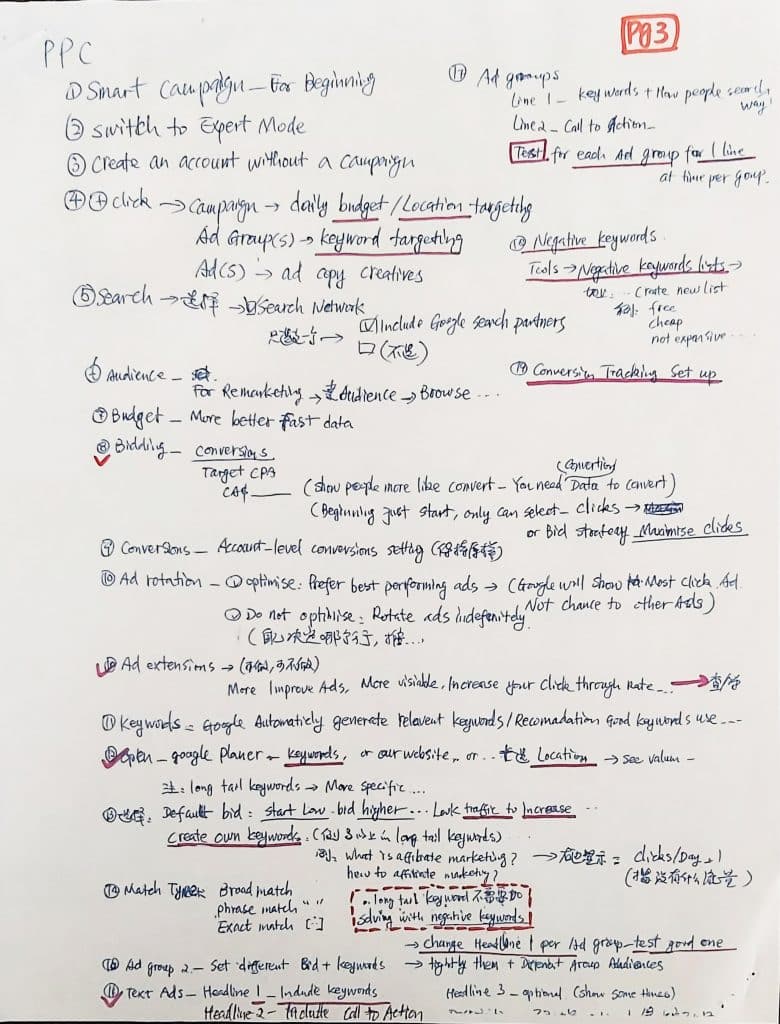 Pg3
PPC
① Smart Campaign - For Beginning
② switch to Expert Mode
③ Create an account without a campaign
④ + click → Campaign → daily budget / Location targeting
Ad Group(s) → keyword targeting
Ad(s) → ad copy creatives
⑤ Search → 选择 → ☑ Search Network
→ ☑ Include Google search partners
☐ (不选)
Audience -
For Remarketing → Audience → Browse ...
⑦ Budget - More better Fast data
⑧ Bidding - Conversions
Target CPA
(show people more like convert - You need (Convertion) Data to convert)
(Beginning just start, only can select - clicks →
or Bid strategy Maximise clicks
⑨ Conversions - Account-level conversions setting
⑩ Ad rotation - ① optimise: Prefer best performing ads → (Google will show Most click Ad.
Not chance to other Ads)
② Do not optimise: Rotate ads indefinitely
Ad extensions →
More Improve Ads, More visiable, Increase your Click through Rate... →
⑪ Keywords = Google Automaticly generate relavent keywords / Recomadation Good keywords use ...
⑫ Open - google Planer - Keywords, or our website, or .. Location → see valum -
注: long tail keywords → More specific ...
⑬ 选择. Default bid: start Low. bid higher ... Lack traffic to Increase ..
Create own keywords. long tail keywords)
例: what is affibrate marketing? → = clicks/Day
how to affibrate marketing?
⑭ Match Types Broad match
phrase match " "
Exact match [ ]
long tail keyword 不需要加
solving with negative keywords
→ change Headline 1 per Ad group - test good one
Ad group 2 - Set different Bid + keywords → tightly them + Different Group Audiences
⑯ Text Ads - Headline 1 - Include keywords Headline 3 - optional (show some times)
Headline 2 - Include Call to Action
⑰ Ad groups
Line 1 - keywords + How people search way!
Line 2 - Call to Action -
Test for each Ad group for 1 line
at time per goup.
⑱ Negative keywords
Tools → Negative keywords lists →
Create new list
例: free
cheap
not expensive ....
⑲ Conversion Tracking Set up